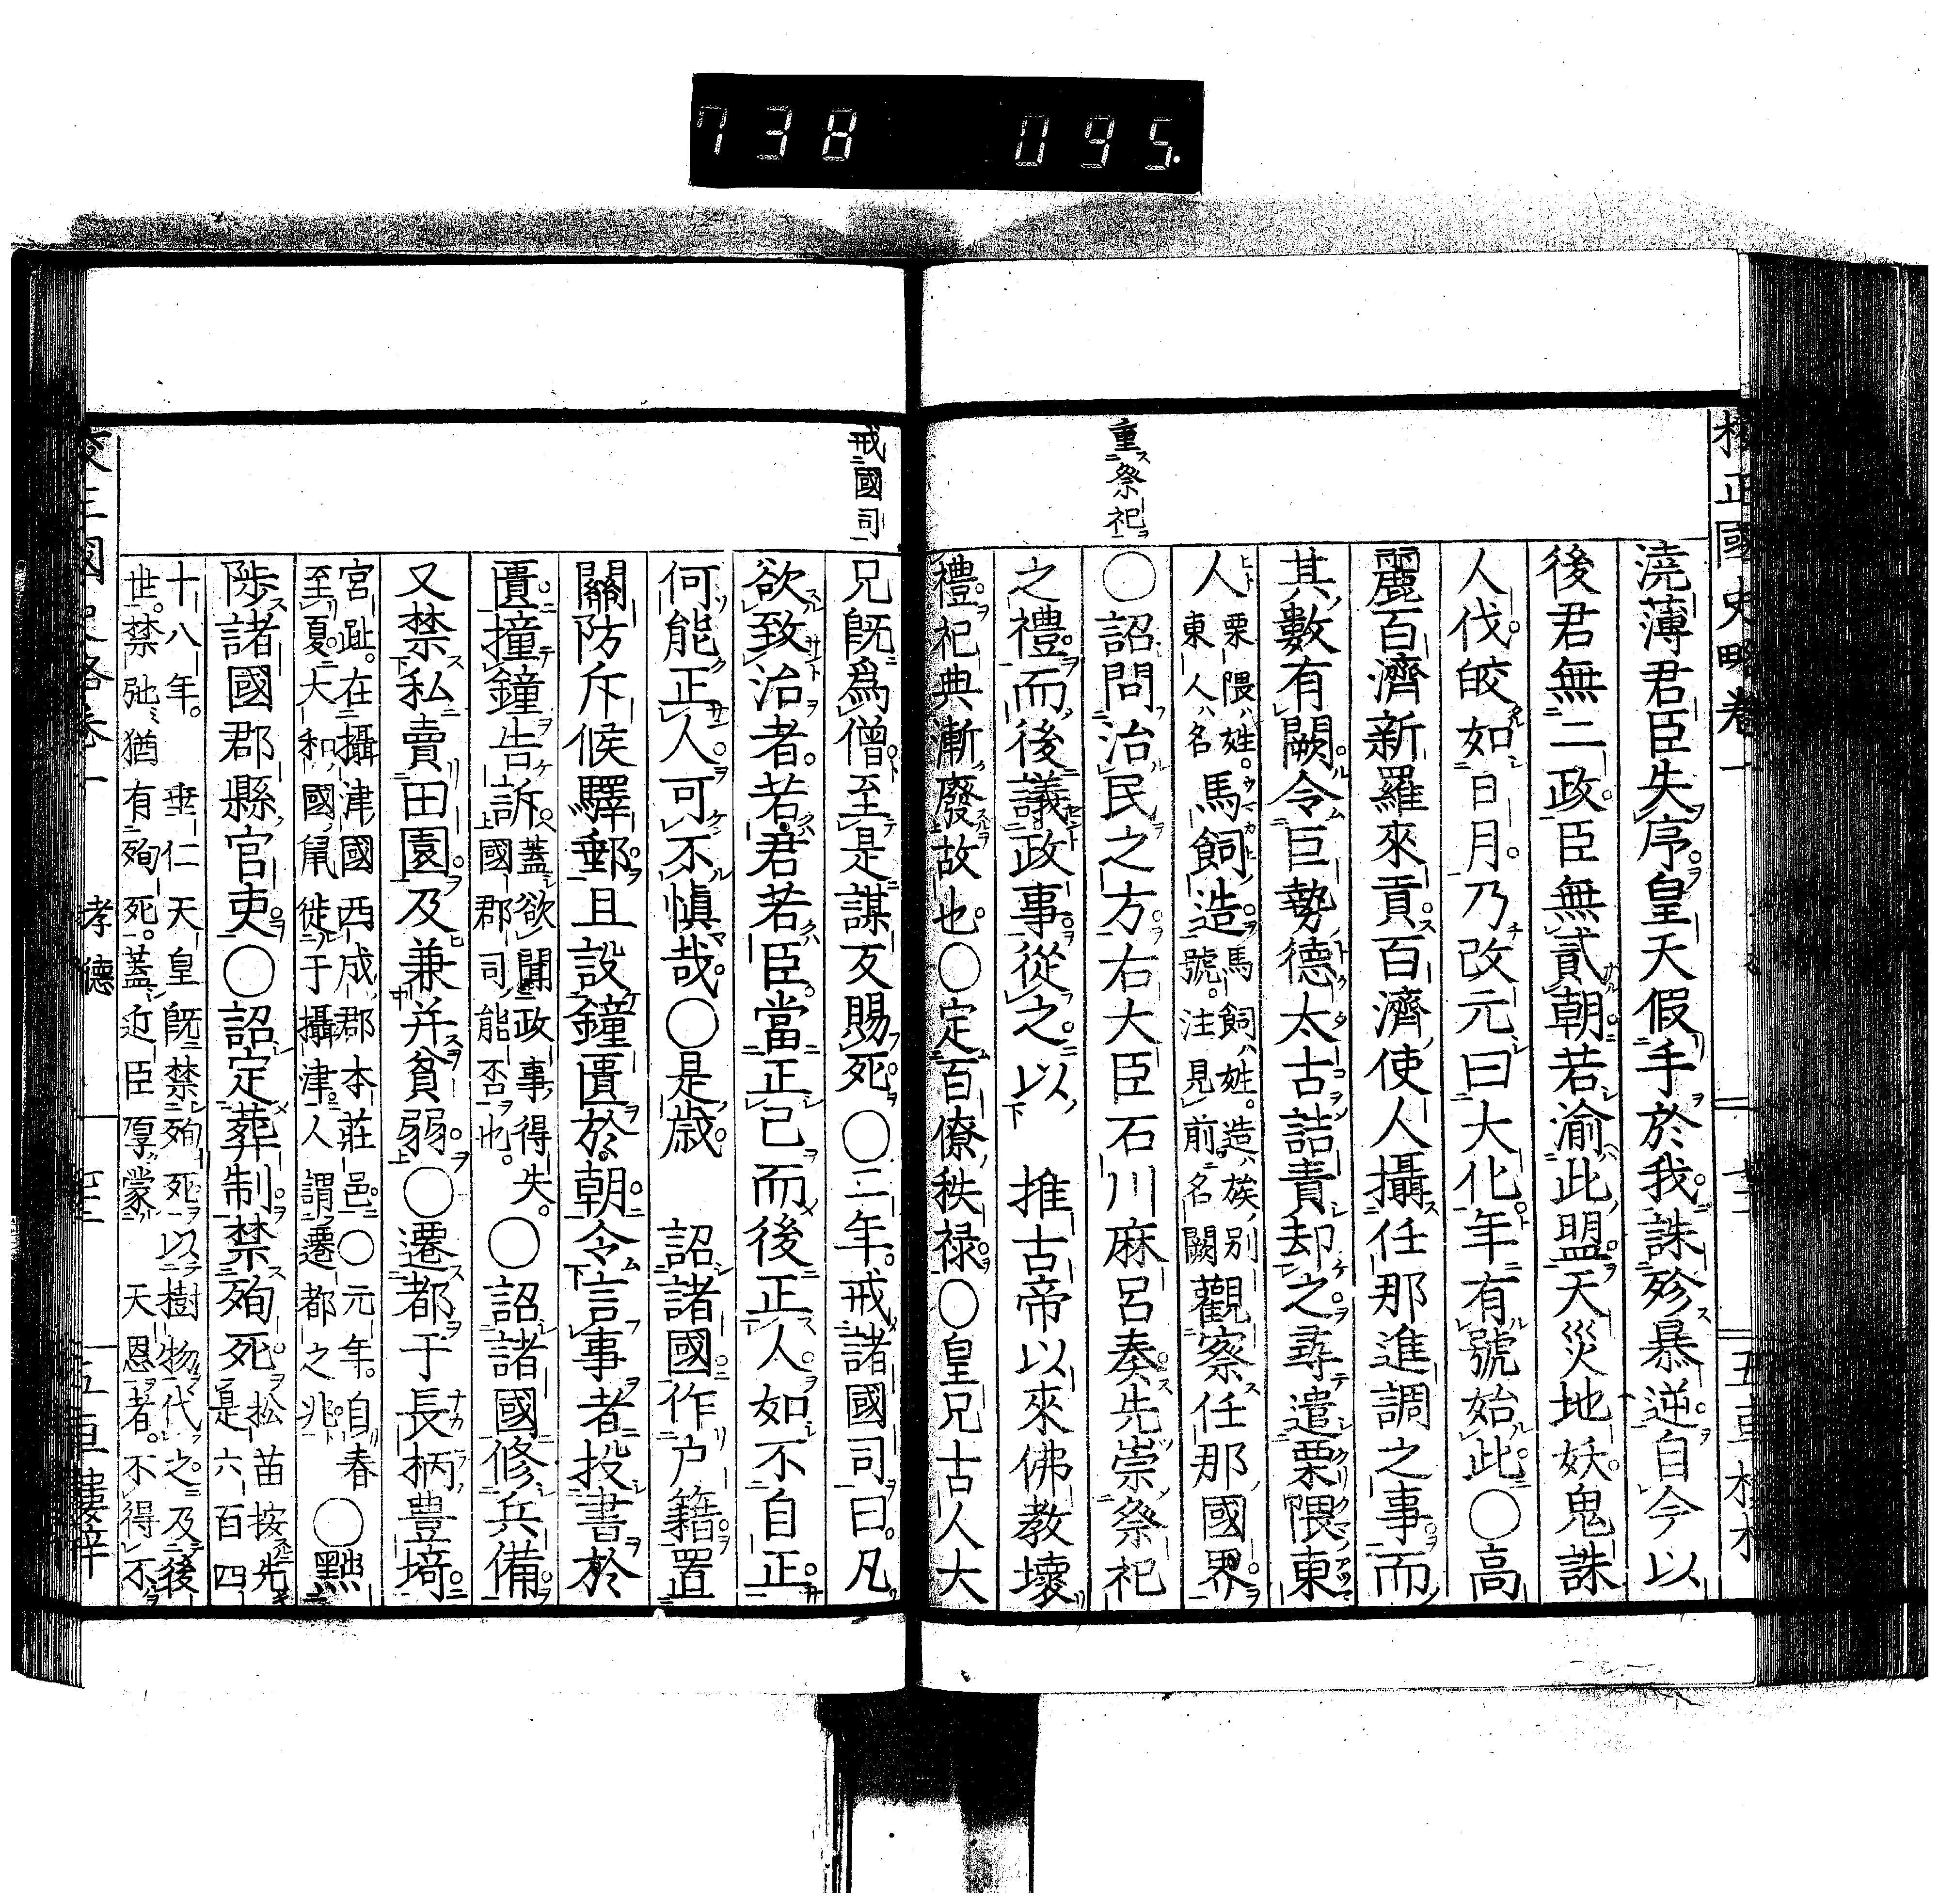 738 095.
校正國史略卷一
五車樓校本
重祭祀
澆薄君臣失序皇天假手於我誅殄暴逆自今以
後君無二政臣無貳朝若渝此盟天災地妖鬼誅
人伐皎如日月乃改元曰大化年有號始此〇高
麗百濟新羅來貢百濟使人攝任那進調之事而
其數有闕令巨勢德太古詰責却之尋遣栗隈東
人栗隈ハ姓。東人ハ名馬飼造馬飼ハ姓。造ハ族ノ別號。注見前名闕觀察任那國界
〇詔問治民之方右大臣石川麻呂奏先崇祭祀
之禮而後議政事從之以 推古帝以來佛教壞
禮祀典漸廢故也〇定百僚秩祿〇皇兄古人大
戒國司
兄既爲僧至是謀反賜死〇二年。戒諸國司曰。凡
欲致治者。若君若臣。當正己而後正人如不自正
何能正人可不愼哉〇是歲 詔諸國作户籍置
關防斥候驛郵且設鐘匱於朝令言事者投書於
匱撞鐘告訴蓋欲聞政事得失。國郡司能否也。〇詔諸國修兵備
又禁私賣田園及兼并貧弱〇遷都于長柄豊埼
宮趾。在攝津國西成郡本莊邑〇元年。自春至夏大和國鼠徙于攝津人謂遷都之兆〇黜
陟諸國郡縣官吏〇詔定葬制禁殉死松苗按先是六百四
十八年。 垂仁天皇既禁殉死以樹物代之及後
世。禁弛猶有殉死。蓋近臣厚蒙 天恩者。不得不
孝德